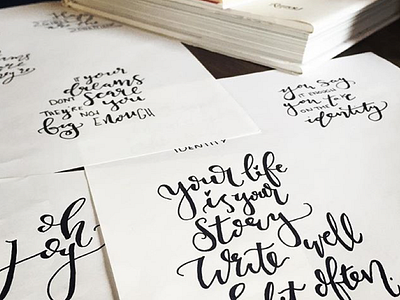 if your
dreams
DON'T scare
you
THEY'RE NOT
big ENOUGH
you say
IT ENOUGH
you
ON THE
identity
IDENTITY
Your life
is your
Story
Write well
edit often.
oh
joy